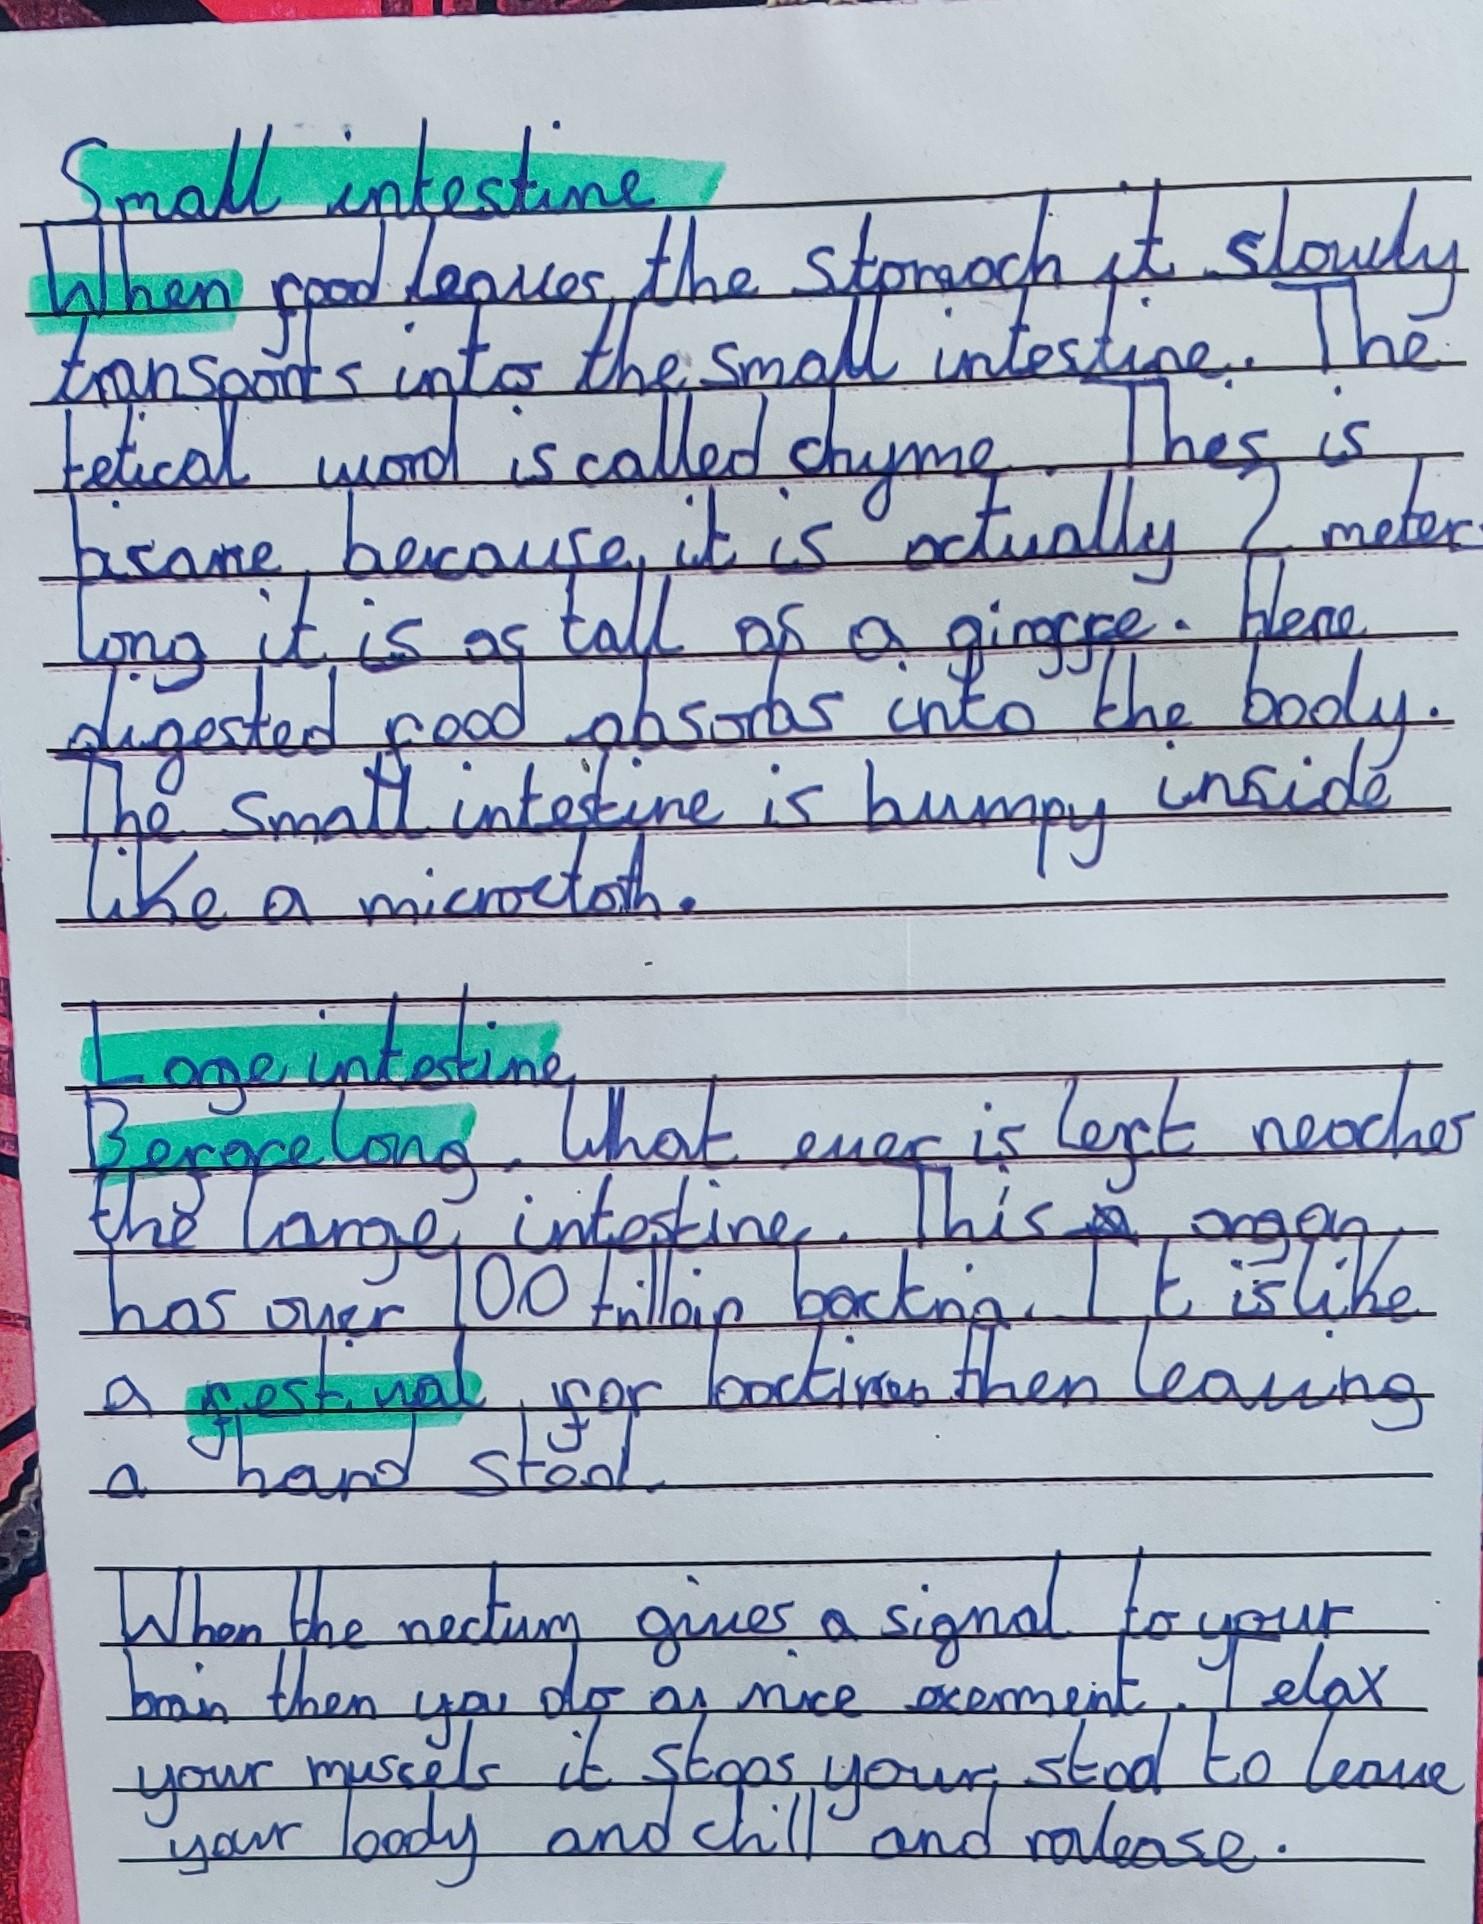 Small intestine
When food leaves the stomach it slowly
transports into the small intestine. The
tetical word is called chyme. Thes is
because it is actually 7 meter
long it is as tall as a giraffe. Here
digested food absorbs into the body.
The small intestine is bumpy inside
like a microcloth.
Lage intestine
Beforelong. What ever is left reaches
the large intestine. This organ
has over 100 trilloin backtria. It is like
a festival for then leaving
a hard stool
When the rectum gives a signal to your
brain then you do a nice excerment. Telax
your muscels it stops your stool to leave
your body and chill and ralease.